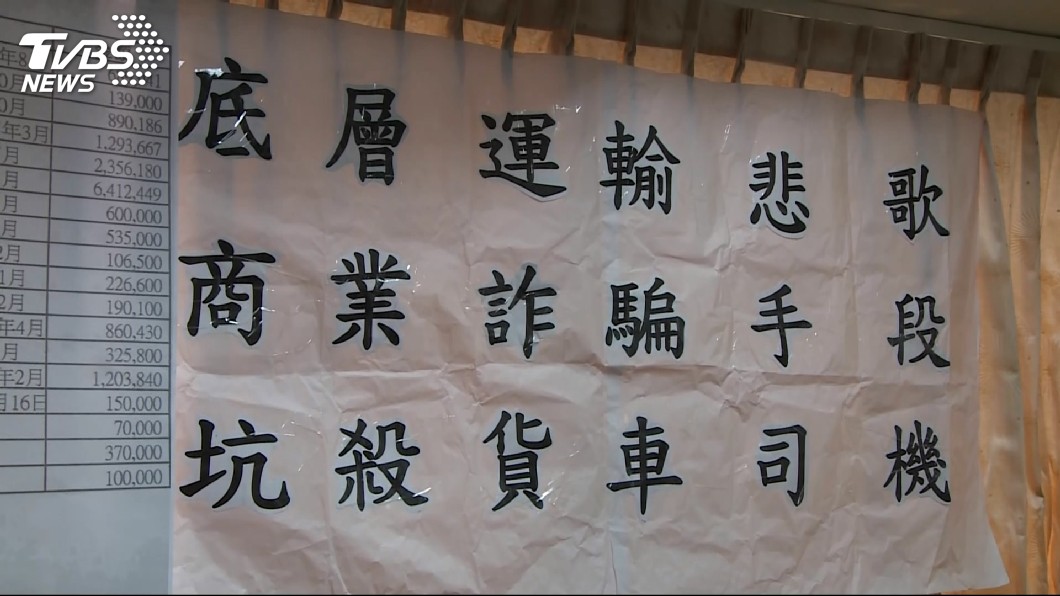 TVBS
NEWS
底層運輸悲歌
商業詐騙手段
坑殺貨車司機
年8
0月 139,000
0月 890,186
年3月 1,293,667
月 2,356,180
月 6,412,449
月 600,000
月 535,000
2月 106,500
1月 226,600
2月 190,100
年4月 860,430
月 325,800
年2月 1,203,840
月16日 150,000
70,000
370,000
100,000